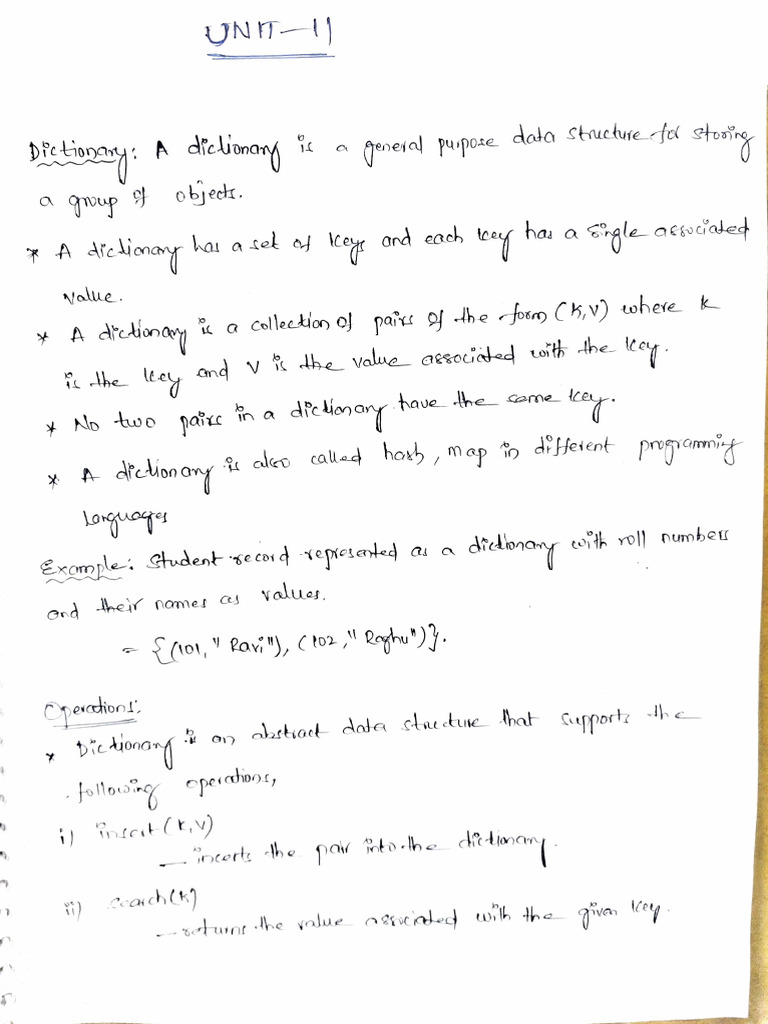 UNIT-II
Dictionary: A dictionary is a general purpose data structure for storing
a group of objects.
* A dictionary has a set of keys and each key has a single associated
value.
* A dictionary is a collection of pairs of the form (K,V) where k
is the key and V is the value associated with the key.
* No two pairs in a dictionary have the same key.
* A dictionary is also called hash, map in different programming
languages
Example: Student record represented as a dictionary with roll numbers
and their names as values.
= {(101,"Ravi"), (102,"Raghu")}.
Operations:
* Dictionary is an abstract data structure that supports the
following operations,
i) insert(K,V)
— inserts the pair into the dictionary.
ii) search(K)
— returns the value associated with the given key.